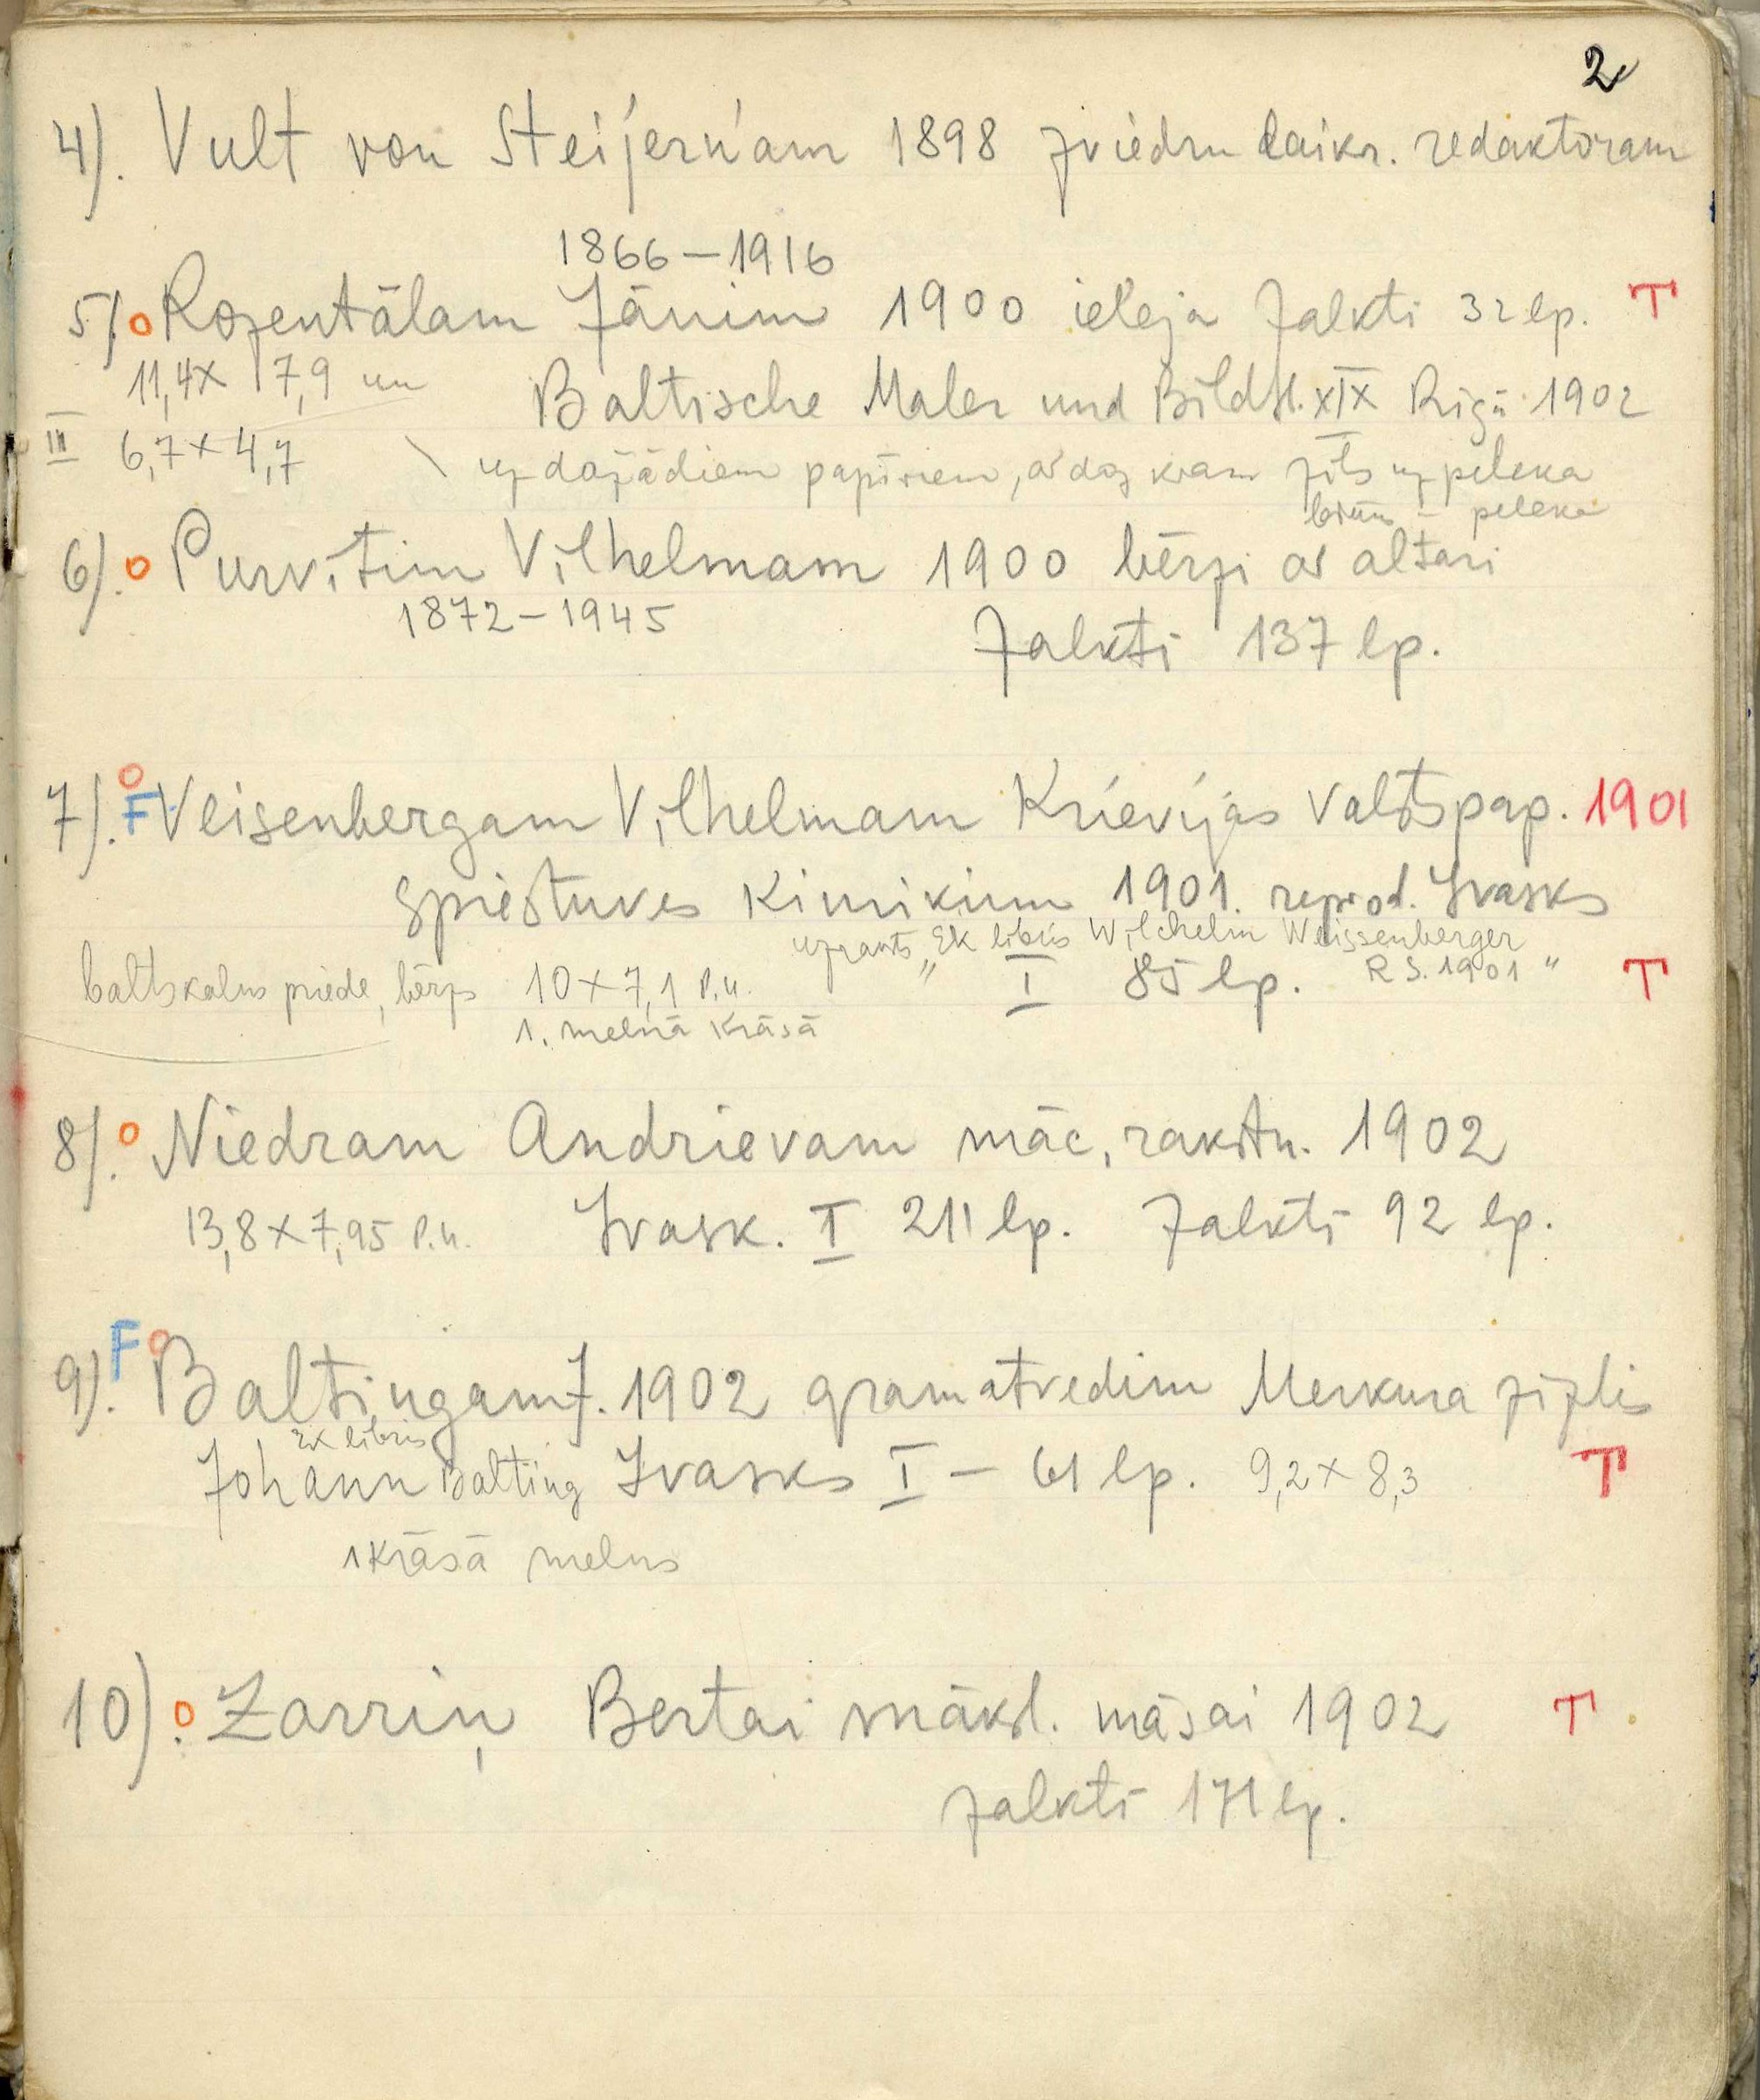 2
4). Vult von Steijern'am 1898 zviedru laikr. redaktoram
1866–1916
5). o Rozentālam Jānim 1900 ieleja Zalkti 32 lp. T
11,4x 17,9 un Baltische Maler und Bildh. XIX Rigā 1902
III 6,7×4,7 \ uz dažādiem papīriem, ar daž krās zils uz peleka
brūns – peleka
6). o Purvītim Vilhelmam 1900 bērzi ar altari
1872–1945
Zalkti 137 lp.
7). o F Veisenbergam Vilhelmam Krievijas Valstspap. 1901
spiestuves Kimikim 1901. reprod. Ivasks
uzraksts „Ek libris Wilchelm Weissenberger
baltskalns priede, bērzs 10×7,1 P.u. I 85 lp. R S. 1901" T
1. melnā Krāsā
8). o Niedram Andrievam māc, rakstn. 1902
13,8×7,95 P.u. Ivask. I 211 lp. Zalkti 92 lp.
9). F o Baltiņgam J. 1902 gramatvedim Merkura zizlis
Ex libris
Johann Balting Ivasks I – 61 lp. 9,2×8,3 T
1 Krāsā melns
10). o Zarriņ Bertai māksl. māsai 1902 T
Zalkti 171 lp.